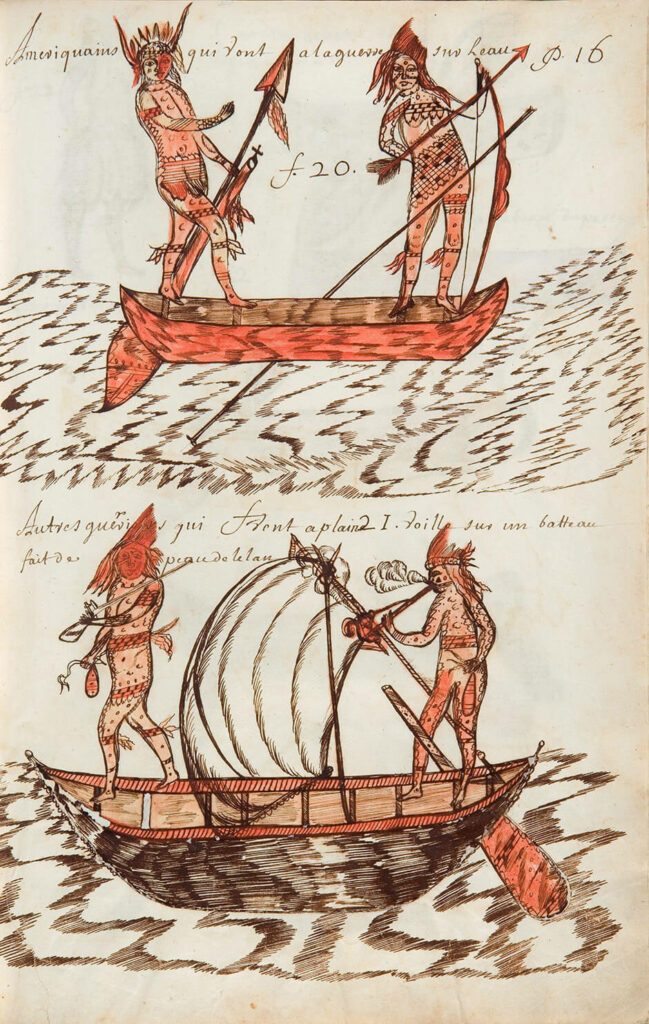 Ameriquains qui vont a la guerre sur Leau p. 16
f. 20.
Autres guerriers qui vont a plain voille sur un batteau
fait de peau de lelan
21.